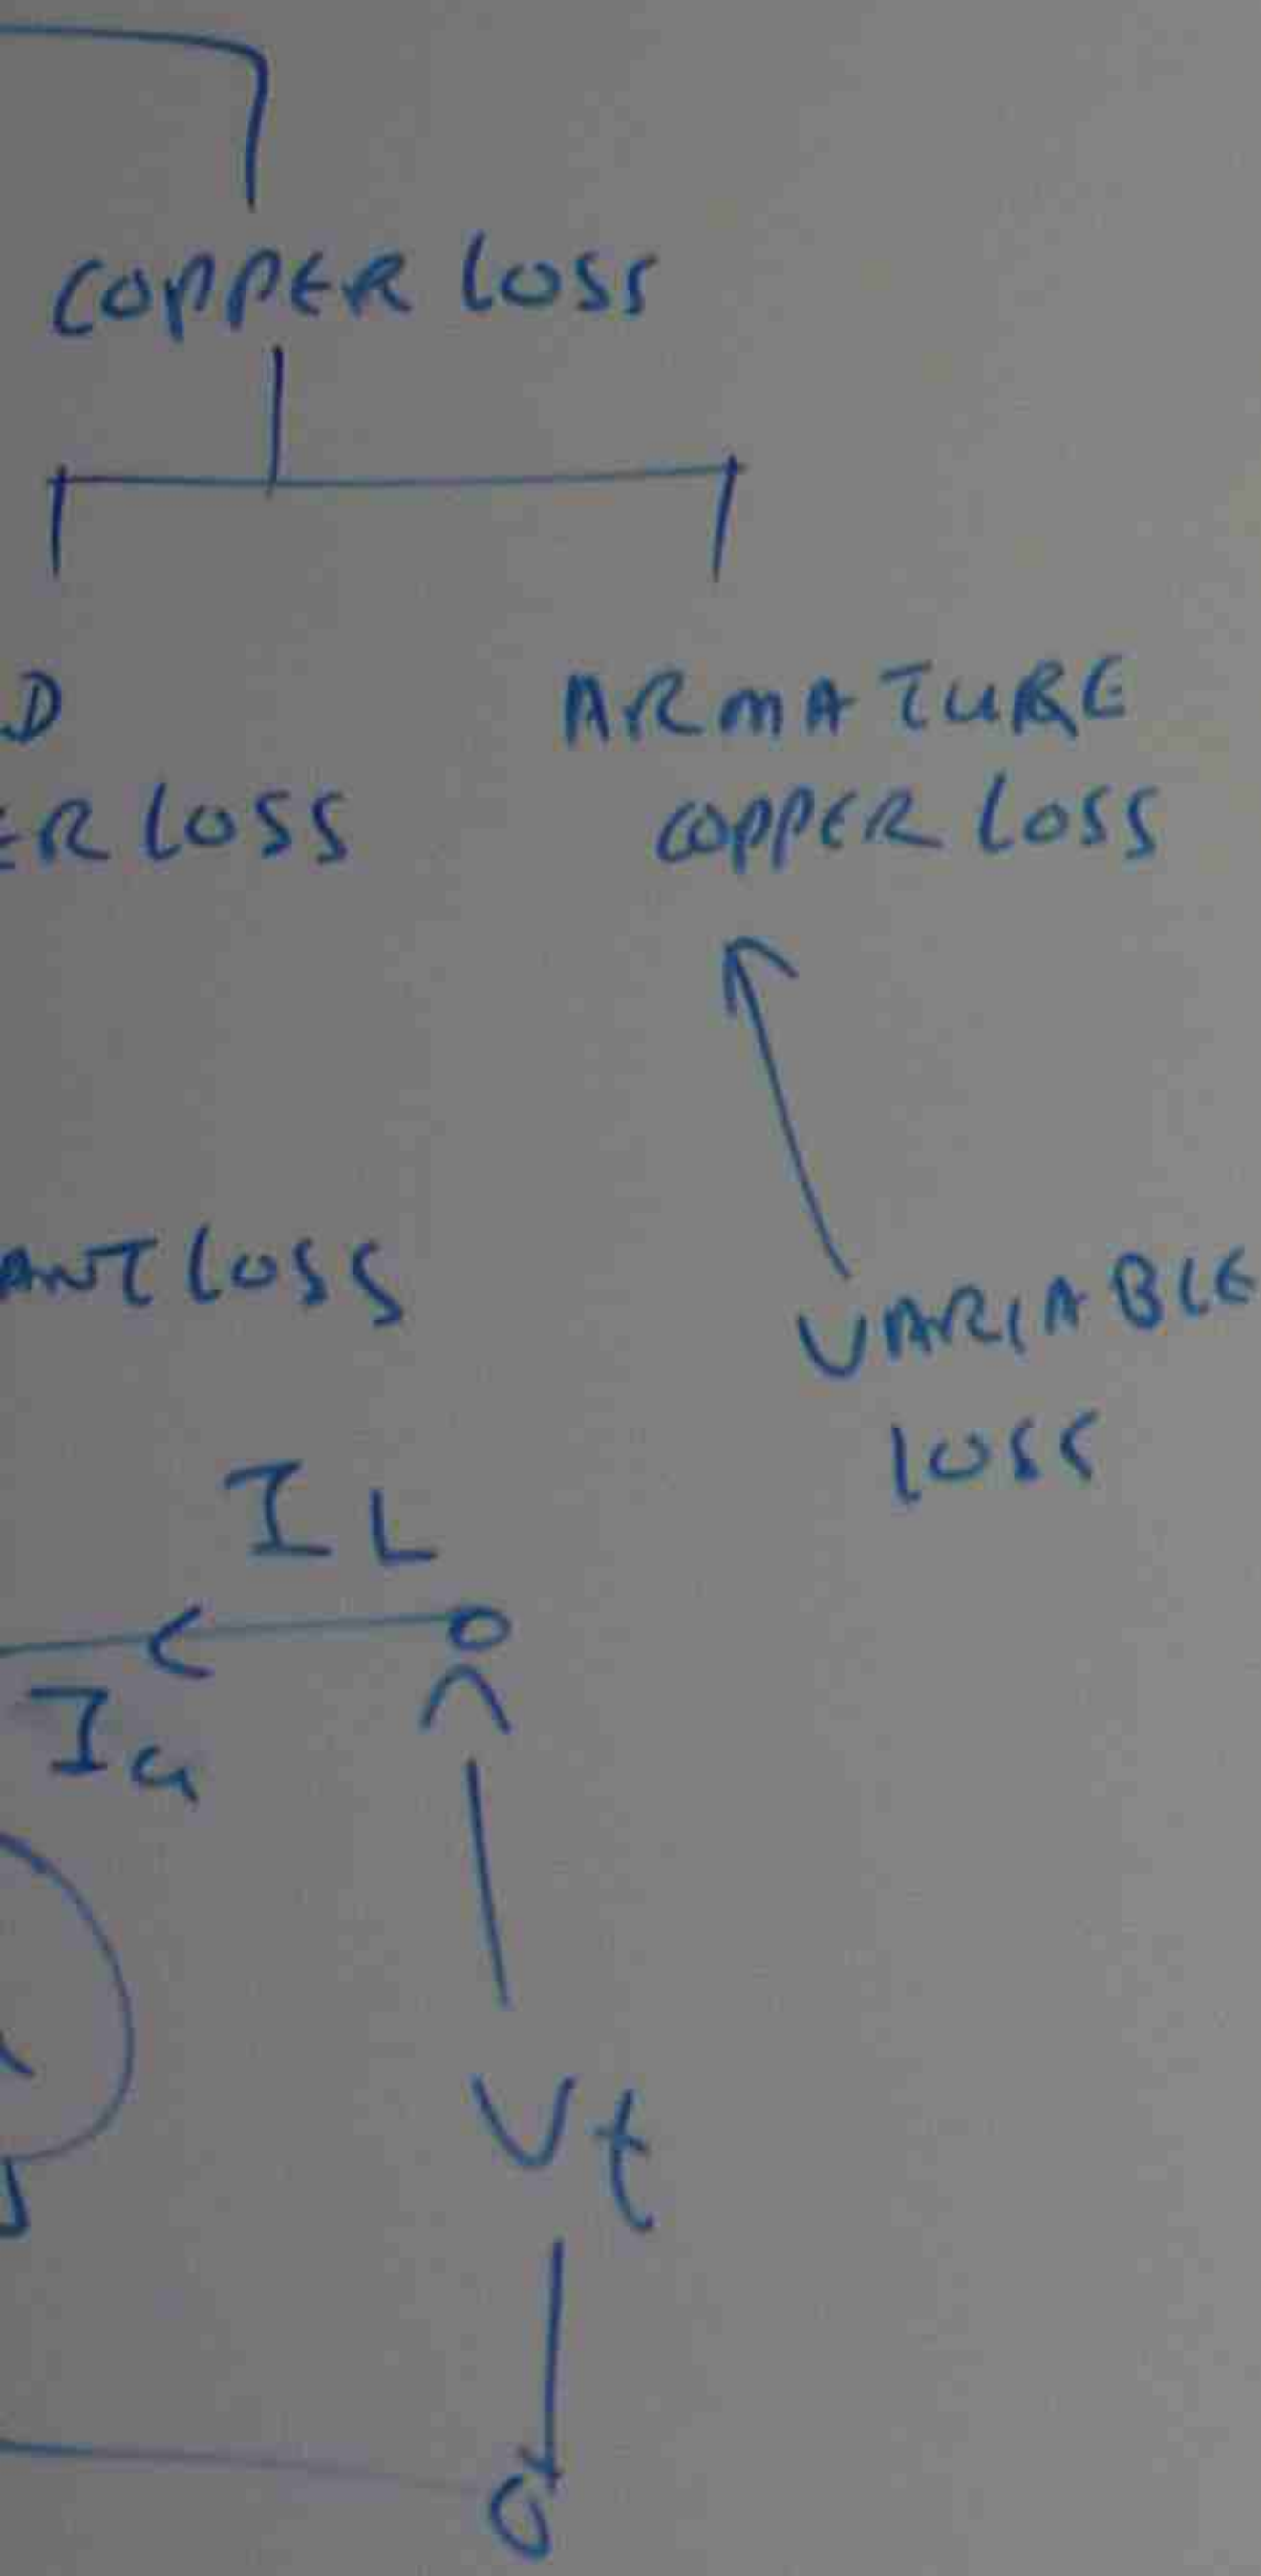 COPPER LOSS
D
ER LOSS
ARMATURE
COPPER LOSS
ANT LOSS
VARIABLE
LOSS
IL
Ia
Vt